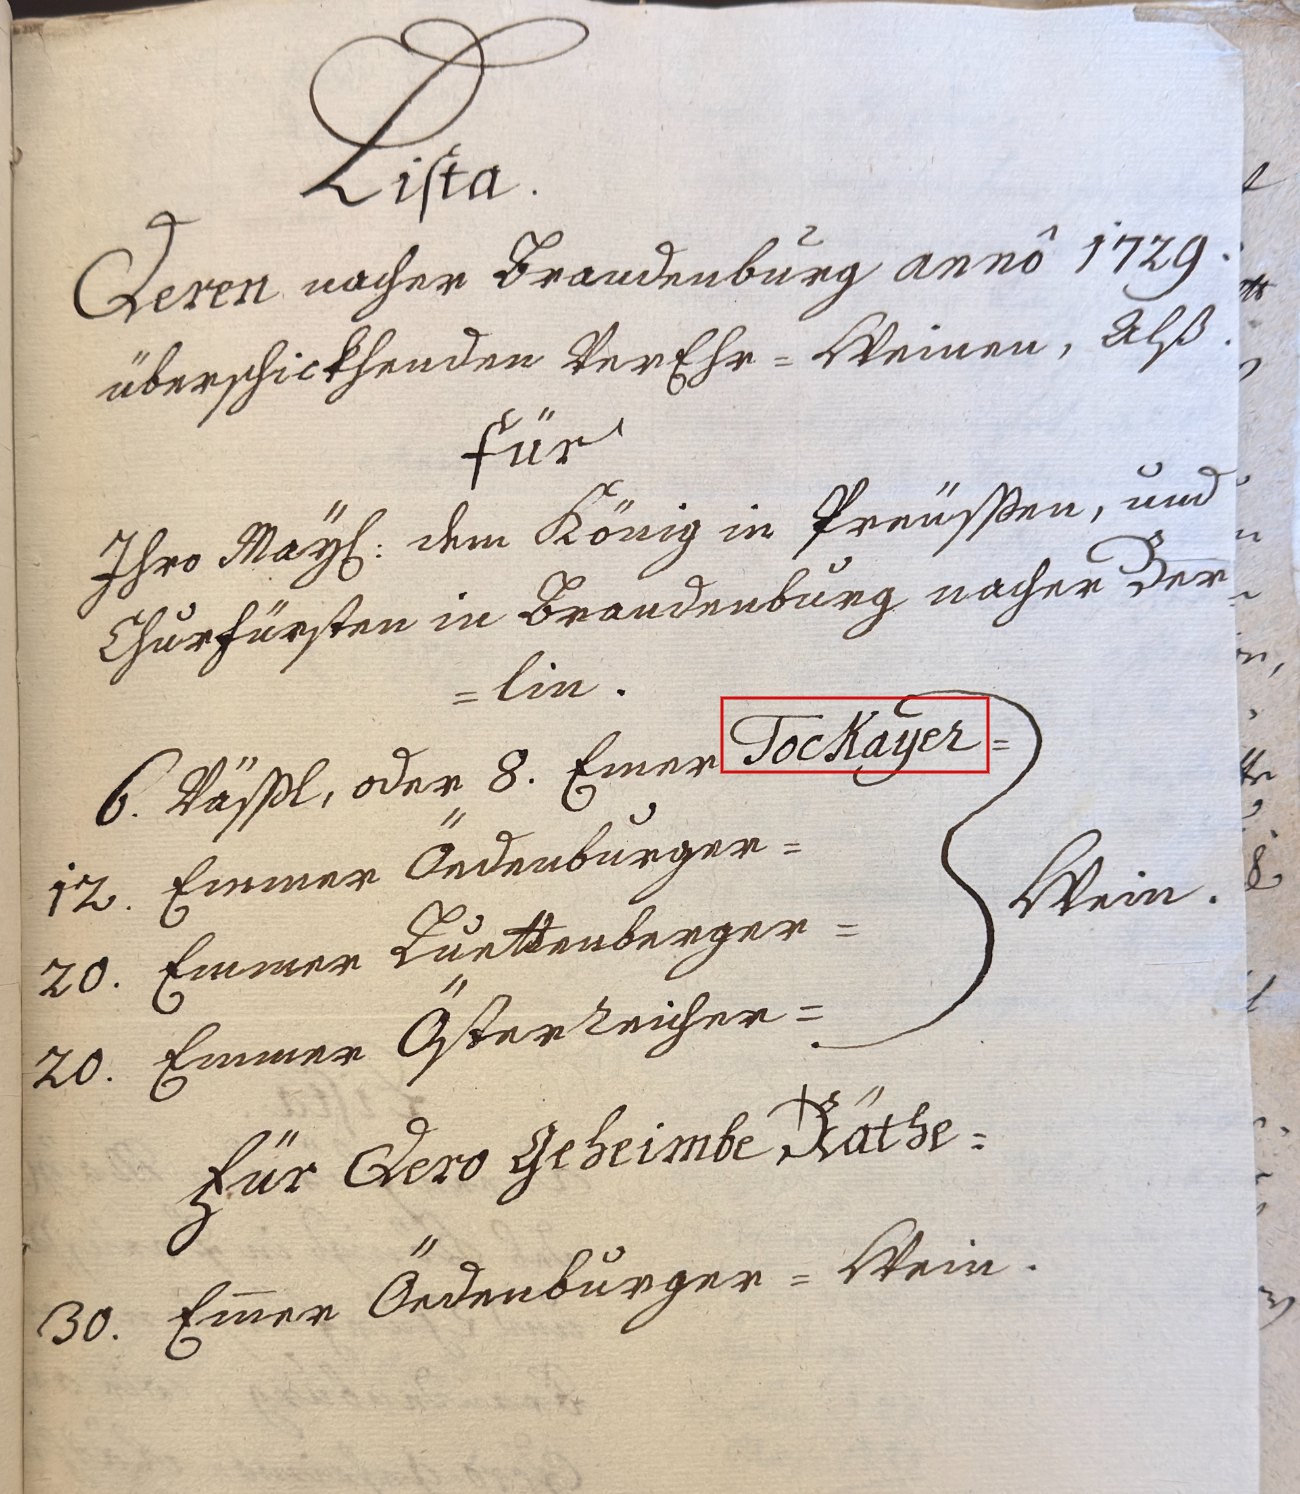 Lista.
Deren nacher Brandenburg annô 1729.
überschickhenden VerEhr=Weinen, Alß.
für
Ihro Mayt: dem König in Preüssen, und
Churfürsten in Brandenburg nacher Ber=
=lin.
6. Vässl, oder 8. Emer Tockayer=
12. Emmer Öedenburger=
20. Emmer Luettenberger=
20. Emmer Österreicher=
Wein.
Für Dero Geheimbe Räthe=
30. Em̅er Öedenburger=Wein.